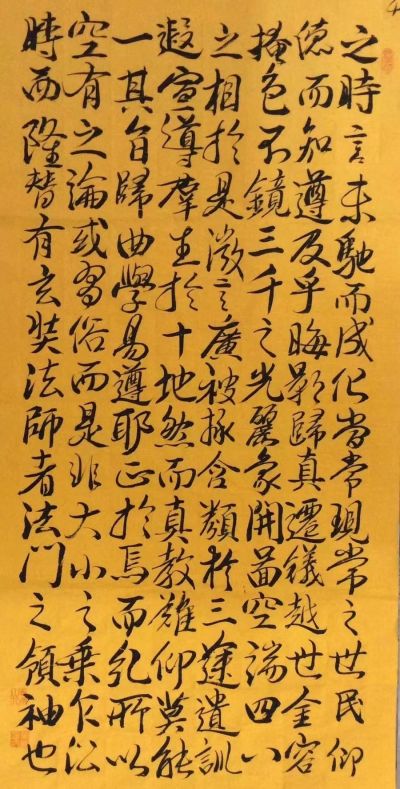 之時言未馳而成化當常現常之世民仰
德而知遵及乎晦影歸真遷儀越世金容
掩色不鏡三千之光麗象開圖空端四八
之相於是微言廣被拯含類於三途遺訓
遐宣導羣生於十地然而真教難仰莫能
一其旨歸曲學易遵耶正於焉而糺所以
空有之論或習俗而是非大小之乘乍沿
時而隆替有玄奘法師者法門之領袖也